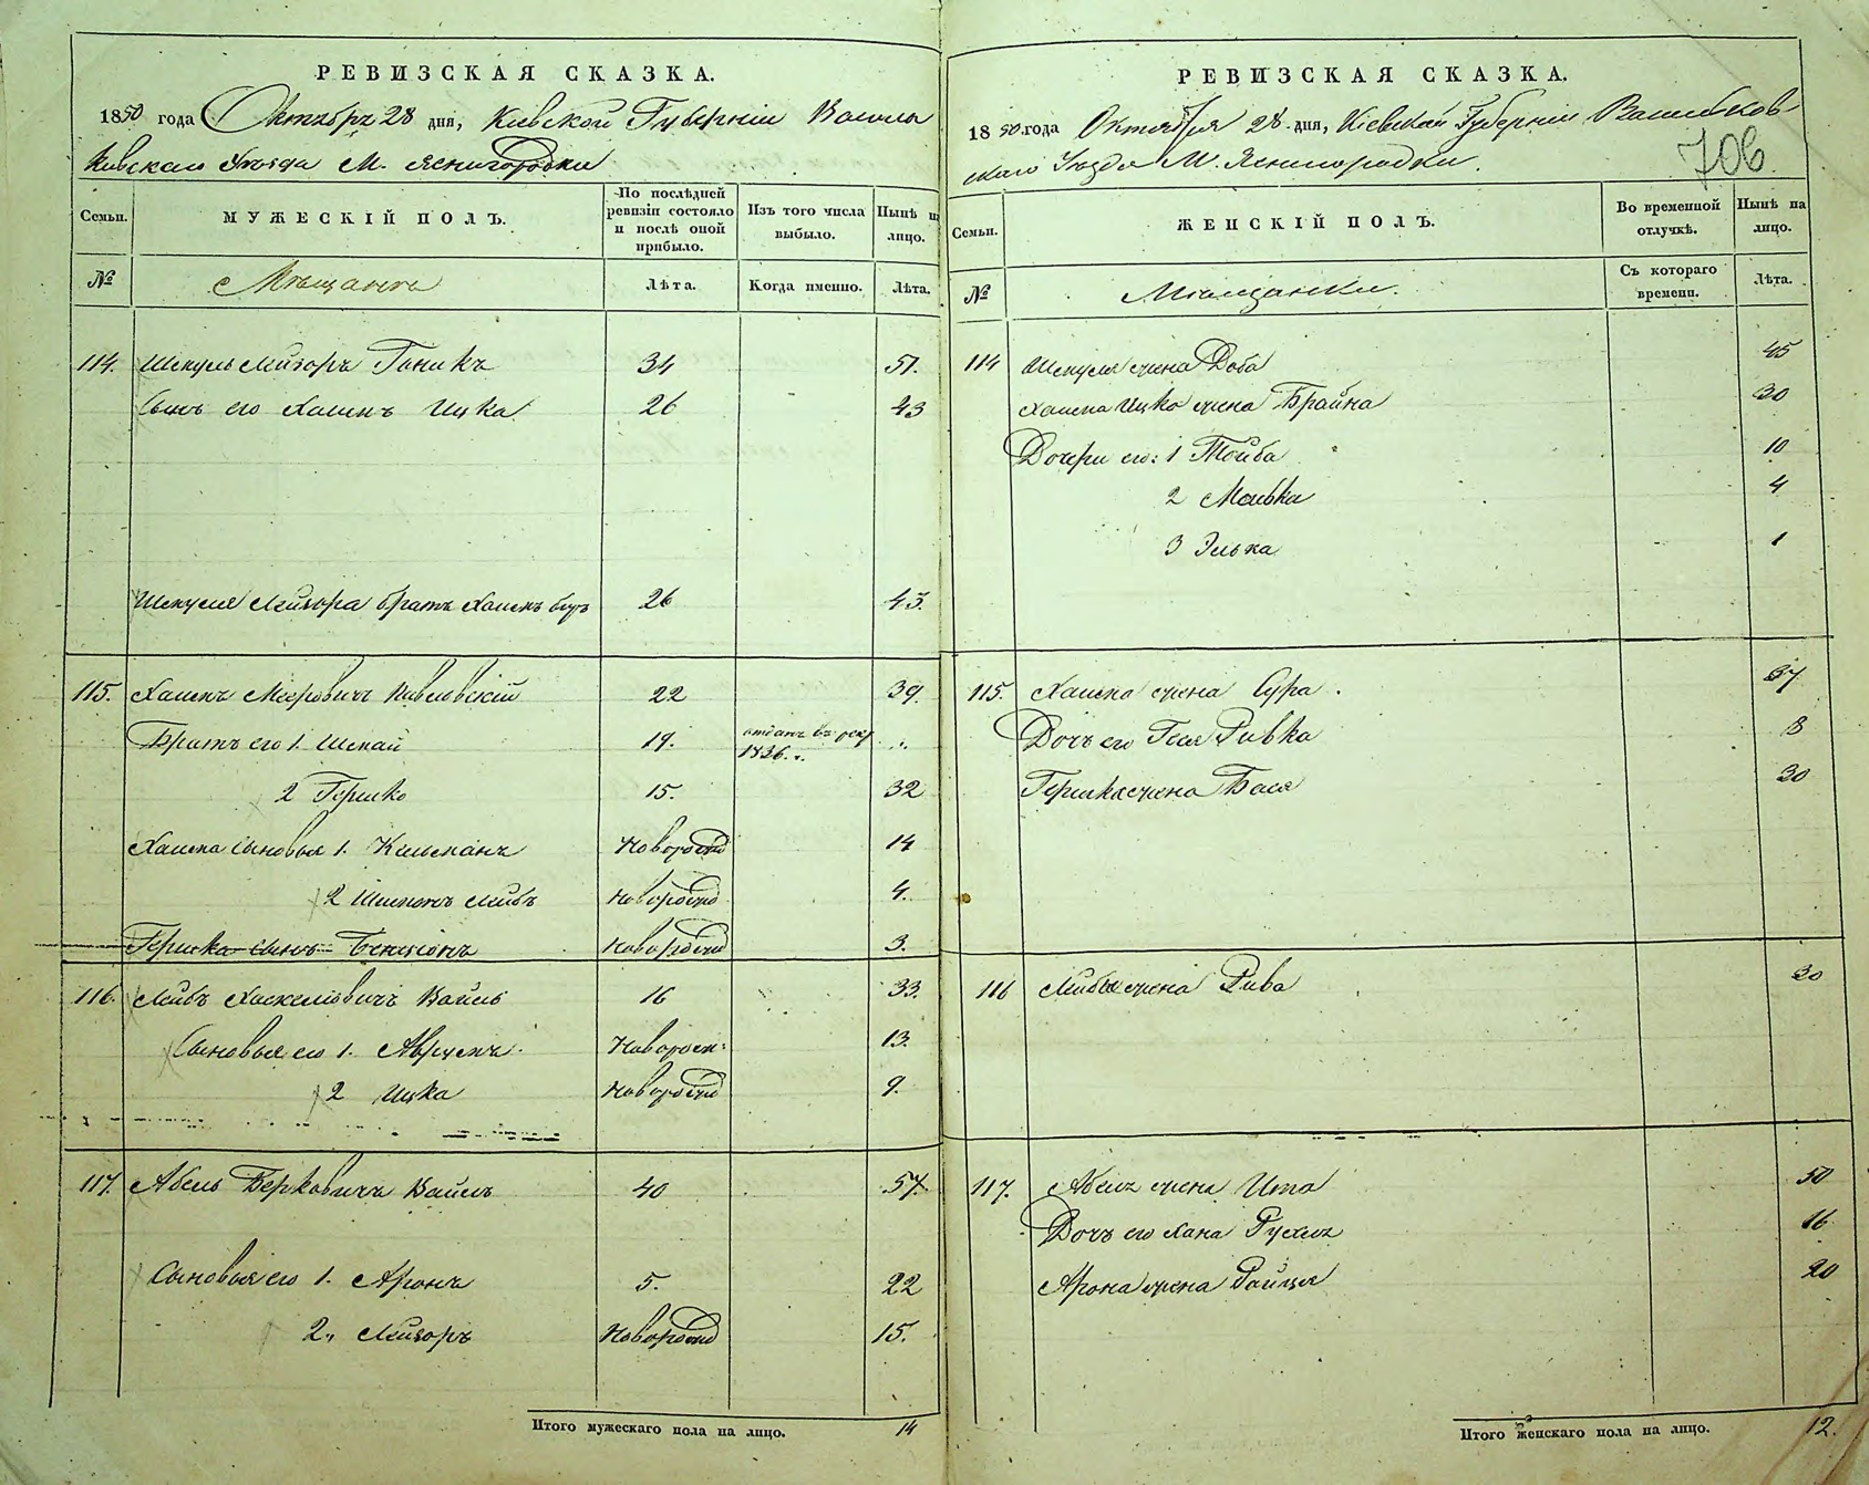 РЕВИЗСКАЯ СКАЗКА.
1850 года Октября 28 дня, Киевской Губернии Василь
ковского Уезда М. Ясногородки
Семьи. МУЖЕСКІЙ ПОЛЪ. По послѣдней ревизіи состояло и послѣ оной прибыло. Изъ того числа выбыло. Нынѣ на лицо.
№ Мещане Лѣта. Когда именно. Лѣта.
114. Шмуль Лейзоръ 34 51.
Сынъ его Хаимъ Ицка 26 43
Шмуля Лейзора братъ Хаимъ 26 43.
115. Хаимъ Мееровичъ 22 39.
Братъ его 1. 19. отданъ въ рекр 1836.
2 Гершко 15. 32
Хаима сыновья 1. Кальманъ Новорожд 14
2 Шимонъ Лейбъ Новорожд 4.
Гершка сынъ Бенціонъ Новорожд 3.
116. Лейбъ Хаскелiовичъ Вайсъ 16 33.
Сыновья его 1. Аврумъ Новорож: 13.
2 Ицка Новорожд 9.
117. Абель Берковичъ Вайсъ 40 57.
Сыновья его 1. Аронъ 5. 22
2. Лейзоръ Новорожд 15.
Итого мужескаго пола на лицо. 14
РЕВИЗСКАЯ СКАЗКА.
1850 года Октября 28 дня, Кіевской Губерніи Васильков-
скаго Уезда М. Ясногородки.
706.
Семьи. ЖЕНСКІЙ ПОЛЪ. Во временной отлучкѣ. Нынѣ на лицо.
№ Мещанки. Съ котораго времени. Лѣта.
114 Шмуля жена Доба 45
Хаима Ицко жена Брайна 30
Дочери его: 1 Тойба 10
2 Малька 4
3 Элька 1
115. Хаима жена Сура. 37
Дочь его Ривка 8
Гершка жена Бася 30
116 Лейба жена Рива 30
117. Абеля жена Ита 50
Дочь его Хана Рухля 16
Арона жена Райца 20
Итого женскаго пола на лицо. 12.